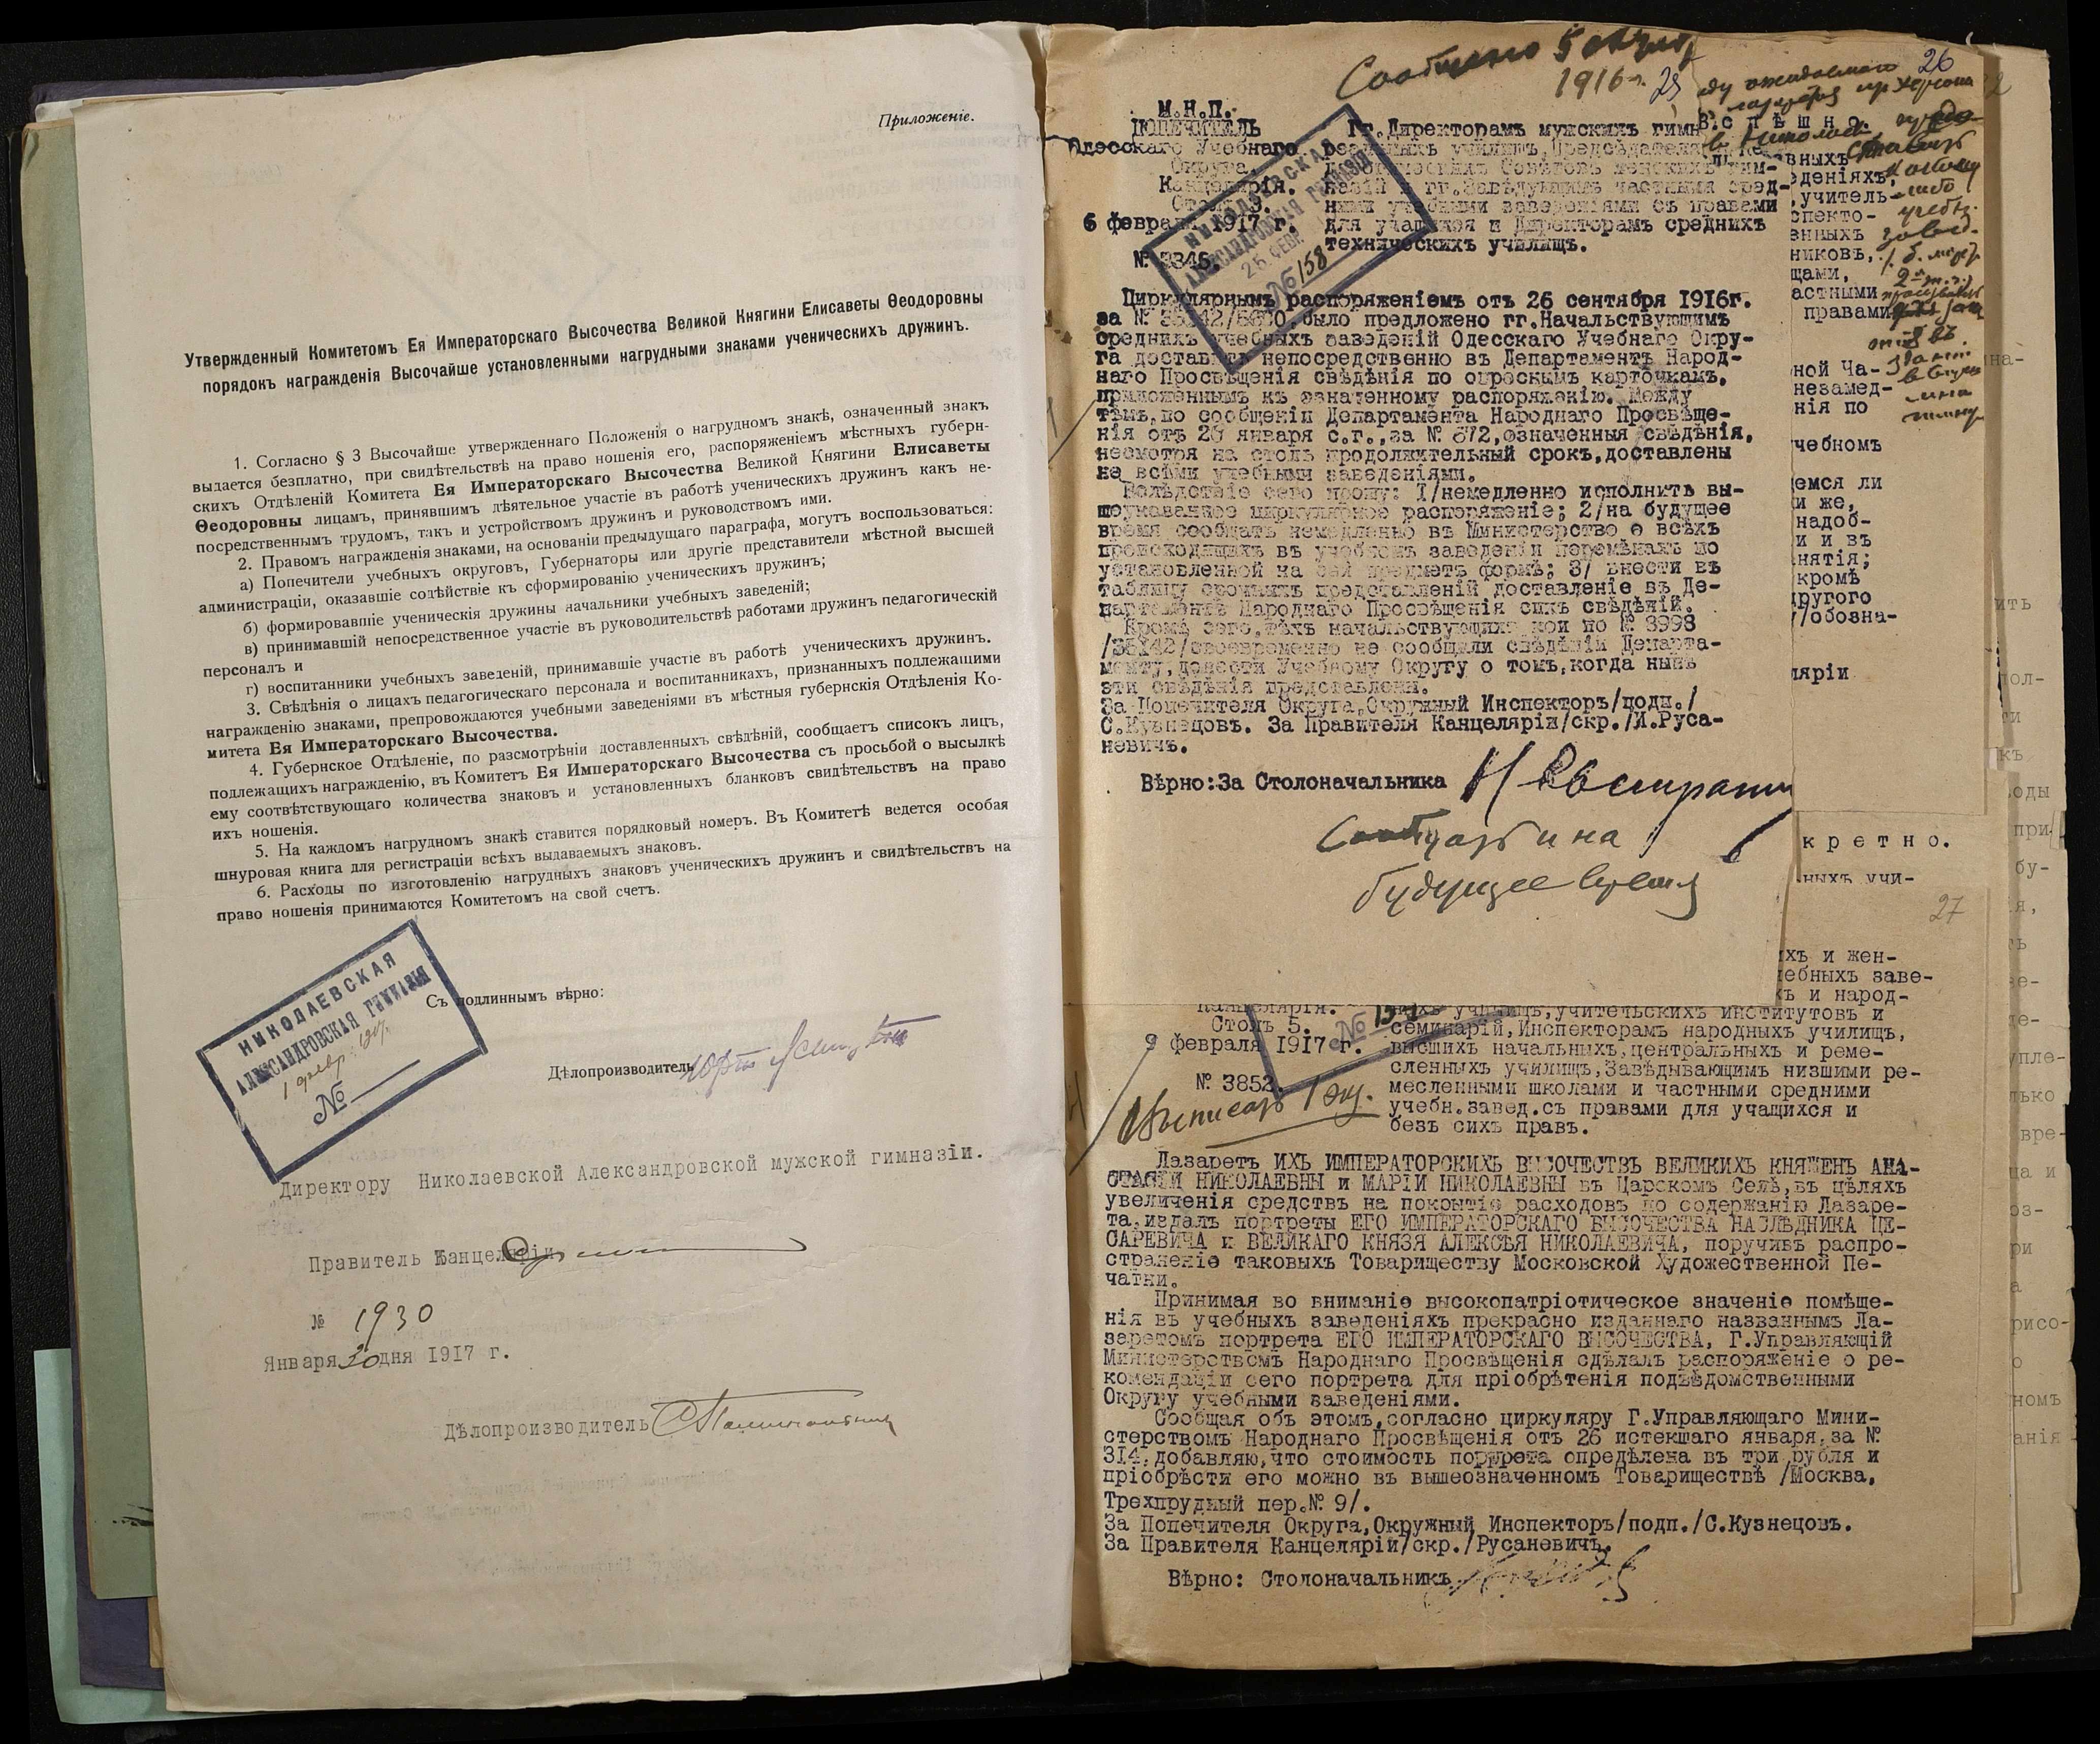 Приложеніе.
Утвержденный Комитетомъ Ея Императорскаго Высочества Великой Княгини Елисаветы Ѳеодоровны
порядокъ награжденія Высочайше установленными нагрудными знаками ученическихъ дружинъ.
1. Согласно § 3 Высочайше утвержденнаго Положенія о нагрудномъ знакѣ, означенный знакъ
выдается безплатно, при свидѣтельствѣ на право ношенія его, распоряженіемъ мѣстныхъ губерн-
скихъ Отдѣленій Комитета Ея Императорскаго Высочества Великой Княгини Елисаветы
Ѳеодоровны лицамъ, принявшимъ дѣятельное участіе въ работѣ ученическихъ дружинъ какъ не-
посредственнымъ трудомъ, такъ и устройствомъ дружинъ и руководствомъ ими.
2. Правомъ награжденія знаками, на основаніи предыдущаго параграфа, могутъ воспользоваться:
а) Попечители учебныхъ округовъ, Губернаторы или другіе представители мѣстной высшей
администраціи, оказавшіе содѣйствіе къ сформированію ученическихъ дружинъ;
б) формировавшіе ученическія дружины начальники учебныхъ заведеній;
в) принимавшій непосредственное участіе въ руководительствѣ работами дружинъ педагогическій
персоналъ и
г) воспитанники учебныхъ заведеній, принимавшіе участіе въ работѣ ученическихъ дружинъ.
3. Свѣдѣнія о лицахъ педагогическаго персонала и воспитанникахъ, признанныхъ подлежащими
награжденію знаками, препровождаются учебными заведеніями въ мѣстныя губернскія Отдѣленія Ко-
митета Ея Императорскаго Высочества.
4. Губернское Отдѣленіе, по разсмотрѣніи доставленныхъ свѣдѣній, сообщаетъ списокъ лицъ,
подлежащихъ награжденію, въ Комитетъ Ея Императорскаго Высочества съ просьбой о высылкѣ
ему соотвѣтствующаго количества знаковъ и установленныхъ бланковъ свидѣтельствъ на право
ихъ ношенія.
5. На каждомъ нагрудномъ знакѣ ставится порядковый номеръ. Въ Комитетѣ ведется особая
шнуровая книга для регистраціи всѣхъ выдаваемыхъ знаковъ.
6. Расходы по изготовленію нагрудныхъ знаковъ ученическихъ дружинъ и свидѣтельствъ на
право ношенія принимаются Комитетомъ на свой счетъ.
НИКОЛАЕВСКАЯ
АЛЕКСАНДРОВСКАЯ ГИМНАЗІЯ
№
Съ подлиннымъ вѣрно:
Дѣлопроизводитель
Директору Николаевской Александровской мужской гимназіи.
Правитель Канцеляріи
№ 1930
Января 30 дня 1917 г.
Дѣлопроизводитель
Сообщено
1916 г. 25
М.Н.П.
ПОПЕЧИТЕЛЬ
Одесскаго Учебнаго
Округа.
Канцелярія.
Столъ 3.
6 февраля 1917 г.
№ 3346.
Гг.Директорамъ мужскихъ гимн
реальныхъ училищъ, Предсѣдателя
Педагогическихъ Совѣтовъ женскихъ гим-
назій и гг.Завѣдующимъ частными сред-
ними учебными заведеніями съ правами
для учащихся и Директорамъ среднихъ
техническихъ училищъ.
НИКОЛАЕВСКАЯ
АЛЕКСАНДРОВСКАЯ ГИМНАЗІЯ
25 ФЕВР.
№ 158
Циркулярнымъ распоряженіемъ отъ 26 сентября 1916г.
за № было предложено гг.Начальствующимъ
среднихъ учебныхъ заведеній Одесскаго Учебнаго Окру-
га доставить непосредственно въ Департаментъ Народ-
наго Просвѣщенія свѣдѣнія по опроснымъ карточкамъ,
приложеннымъ къ означенному распоряженію. Между
тѣмъ,по сообщеніи Департамента Народнаго Просвѣще-
нія отъ 20 января с.г.,за № 872,означенныя свѣдѣнія,
несмотря на столь продолжительный срокъ,доставлены
не всѣми учебными заведеніями.
Вслѣдствіе сего прошу: 1/немедленно исполнить вы-
шеуказанное циркулярное распоряженіе; 2/на будущее
время сообщать немедленно въ Министерство о всѣхъ
происходящихъ въ учебномъ заведеніи перемѣнахъ по
установленной на сей предметъ формѣ; 3/ внести въ
таблицу срочныхъ представленій доставленіе въ Де-
партаментъ Народнаго Просвѣщенія сихъ свѣдѣній.
Кромѣ сего,тѣхъ начальствующихъ кои по № 3998
/35142/своевременно не сообщили свѣдѣній Департа-
менту,донести Учебному Округу о томъ,когда нынѣ
эти свѣдѣнія представлены.
За Попечителя Округа,Окружный Инспекторъ/подп./
С.Кузнецовъ. За Правителя Канцеляріи/скр./И.Руса-
невичъ.
Вѣрно:За Столоначальника
Сообщать и на
будущее время
26
В.спѣшно.
вныхъ
еденіяхъ,
учитель-
спекто-
енныхъ
никовъ,
щами,
астными
правами
ной Ча-
незамед-
нія по
чебномъ
емся ли
и же,
надоб-
и и въ
нятія;
кромѣ
другого
/обозна-
ляріи
кретно.
ныхъ учи-
27
ихъ и жен-
чебныхъ заве-
хъ и народ-
Канцелярія.
Столъ 5.
9 февраля 1917 г.
№ 3852.
Выписать 1 экз.
ныхъ училищъ,учительскихъ институтовъ и
семинарій,Инспекторамъ народныхъ училищъ,
высшихъ начальныхъ,центральныхъ и реме-
сленныхъ училищъ,Завѣдывающимъ низшими ре-
месленными школами и частными средними
учебн.завед.съ правами для учащихся и
безъ сихъ правъ.
Лазаретъ ИХЪ ИМПЕРАТОРСКИХЪ ВЫСОЧЕСТВЪ ВЕЛИКИХЪ КНЯЖЕНЪ АНА-
СТАСІИ НИКОЛАЕВНЫ и МАРІИ НИКОЛАЕВНЫ въ Царскомъ Селѣ,въ цѣляхъ
увеличенія средствъ на покрытіе расходовъ по содержанію Лазаре-
та,издалъ портреты ЕГО ИМПЕРАТОРСКАГО ВЫСОЧЕСТВА НАСЛѢДНИКА ЦЕ-
САРЕВИЧА и ВЕЛИКАГО КНЯЗЯ АЛЕКСѢЯ НИКОЛАЕВИЧА, поручивъ распро-
страненіе таковыхъ Товариществу Московской Художественной Пе-
чатни.
Принимая во вниманіе высокопатріотическое значеніе помѣще-
нія въ учебныхъ заведеніяхъ прекрасно изданнаго названнымъ Ла-
заретомъ портрета ЕГО ИМПЕРАТОРСКАГО ВЫСОЧЕСТВА, Г.Управляющій
Министерствомъ Народнаго Просвѣщенія сдѣлалъ распоряженіе о ре-
комендаціи сего портрета для пріобрѣтенія подвѣдомственными
Округу учебными заведеніями.
Сообщая объ этомъ,согласно циркуляру Г.Управляющаго Мини-
стерствомъ Народнаго Просвѣщенія отъ 26 истекшаго января,за №
314,добавляю,что стоимость портрета опредѣлена въ три рубля и
пріобрѣсти его можно въ вышеозначенномъ Товариществѣ /Москва,
Трехпрудный пер.№ 9/.
За Попечителя Округа,Окружный Инспекторъ/подп./С.Кузнецовъ.
За Правителя Канцеляріи/скр./Русановичъ.
Вѣрно: Столоначальникъ